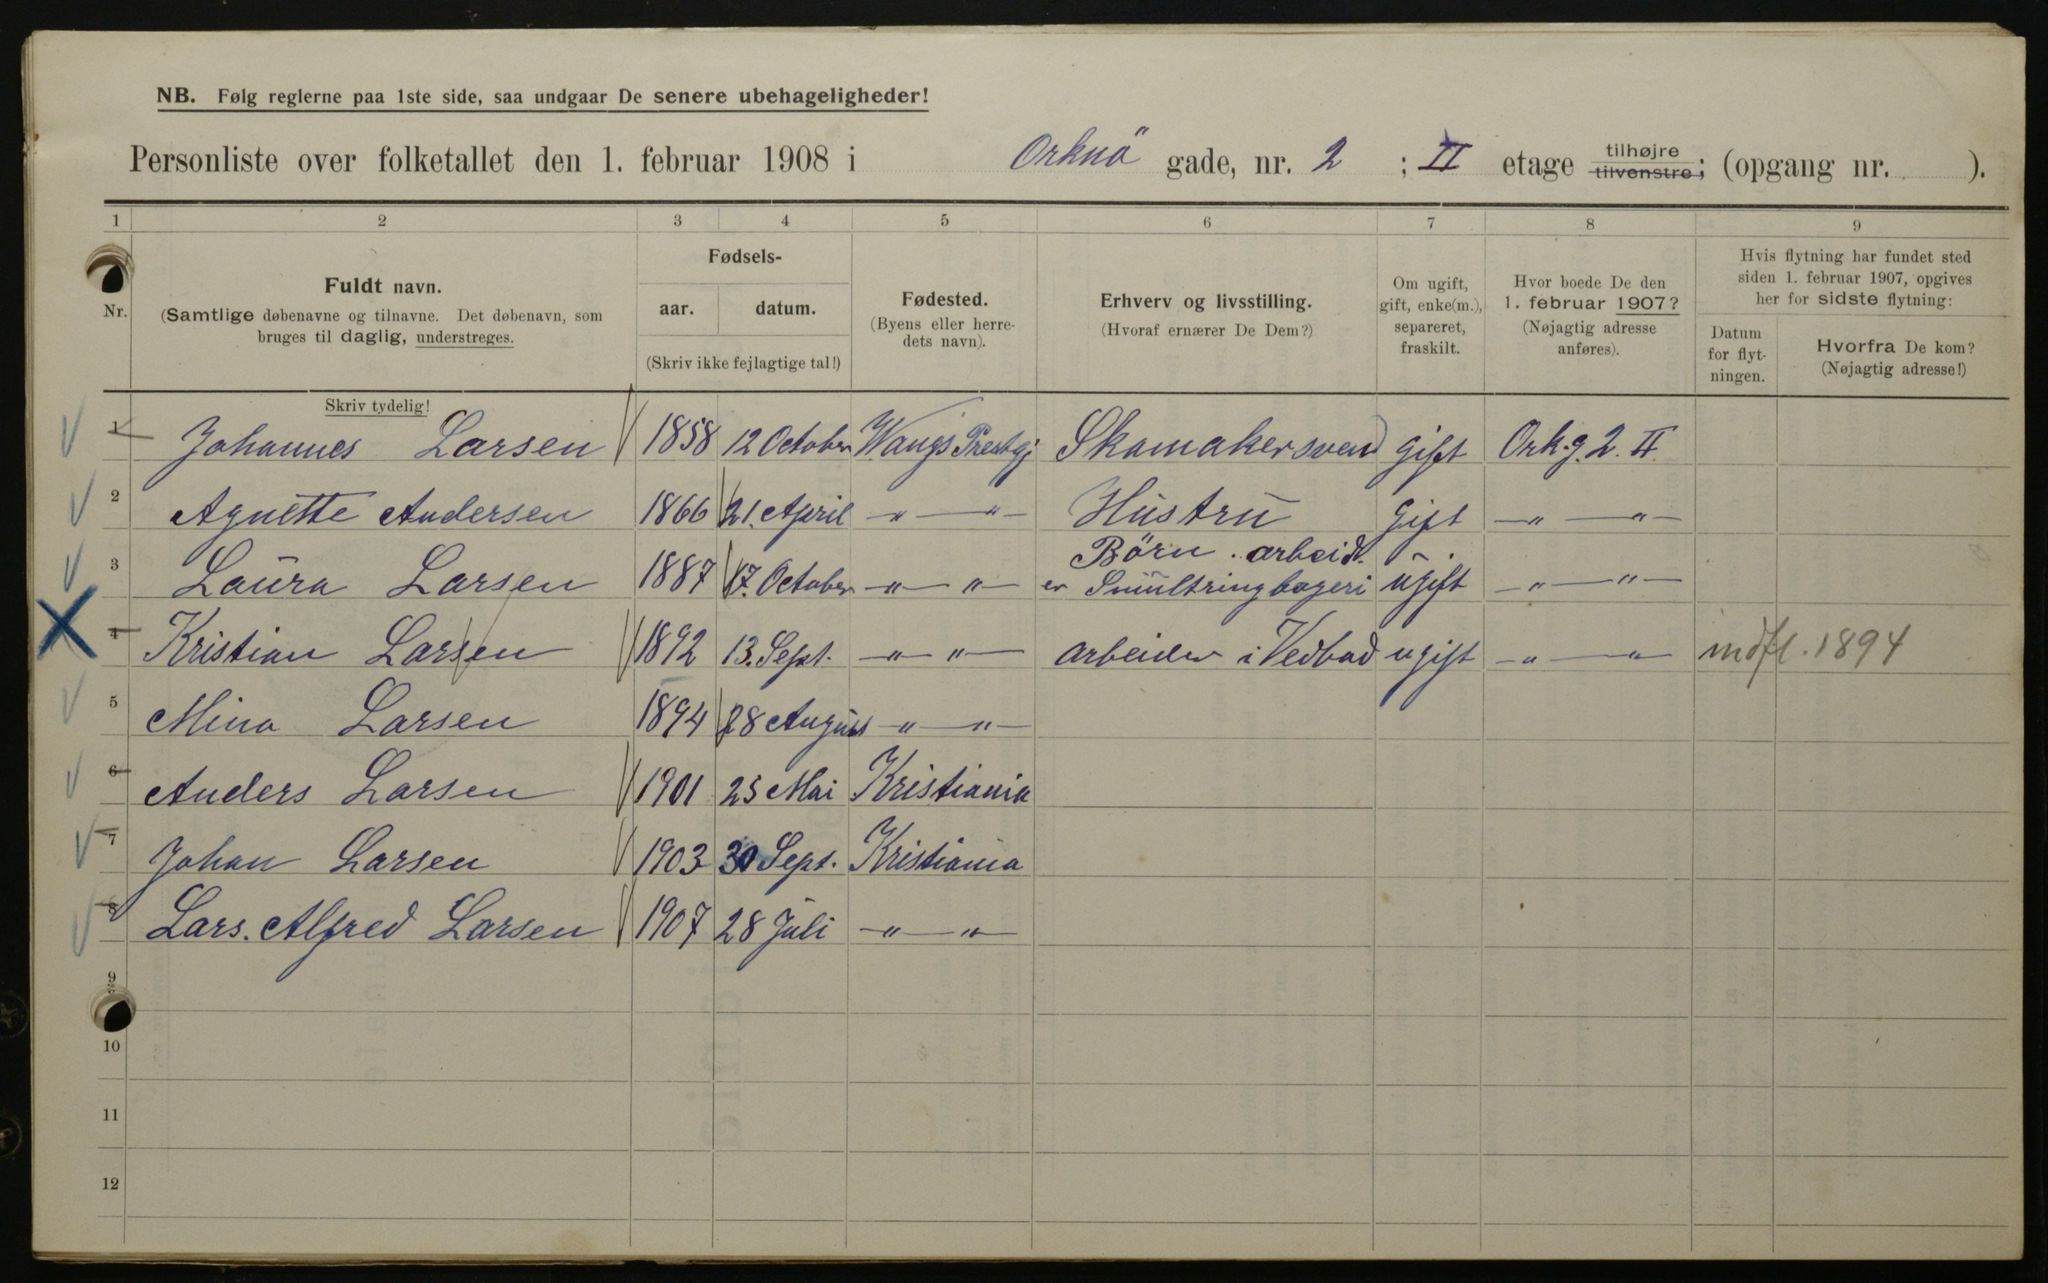 NB. Følg reglerne paa 1ste side, saa undgaar De senere ubehageligheder!
Personliste over folketallet den 1. februar 1908 i Orknö gade, nr. 2 ; II etage tilhøjre tilvenstre; (opgang nr. ).
1 2 3 4 5 6 7 8 9
Nr.
Fuldt navn.
(Samtlige døbenavne og tilnavne. Det døbenavn, som
bruges til daglig, understreges.
Fødsels-
aar. datum.
(Skriv ikke fejlagtige tal!)
Fødested.
(Byens eller herre-
dets navn).
Erhverv og livsstilling.
(Hvoraf ernærer De Dem?)
Om ugift,
gift, enke(m.),
separeret,
fraskilt.
Hvor boede De den
1. februar 1907?
(Nøjagtig adresse
anføres).
Hvis flytning har fundet sted
siden 1. februar 1907, opgives
her for sidste flytning:
Datum
for flyt-
ningen.
Hvorfra De kom?
(Nøjagtig adresse!)
Skriv tydelig!
1 Johannes Larsen 1858 12 October Wangs Prestgj Skomakersvend gift Ork.g. 2. II.
2 Agnette Andersen 1866 21. April —„— —„— Hustru gift —„— —„—
Börn. arbeid.
3 Laura Larsen 1887 17. October —„— „— er Smultringbageri ugift —„— „—
4 Kristian Larsen 1892 13. Sept. —„— „— arbeider i Vedbod ugift —„— „— indfl. 1894
5 Mina Larsen 1894 28 August —„— „—
6 Anders Larsen 1901 25 Mai Kristiania
7 Johan Larsen 1903 30 Sept. Kristiania
8 Lars. Alfred Larsen 1907 28 Juli —„— „—
9
10
11
12